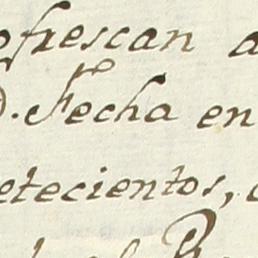 ofrescan a
D. Fecha en
etecientos,